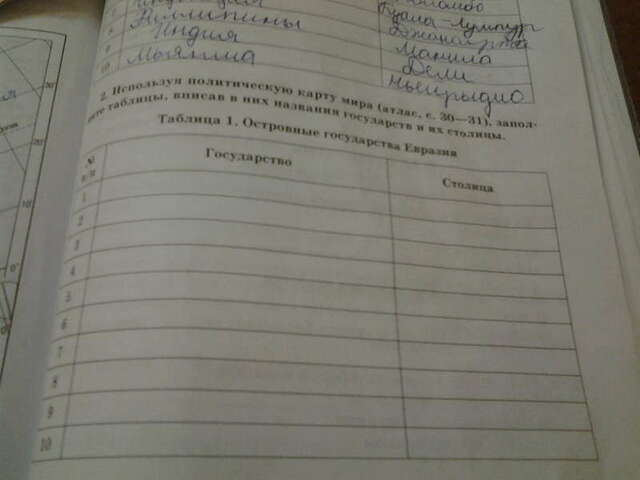 Коломбо
Куала-Лумпур
8 Филиппины Джакарта
9 Индия Манила
10 Мьянма Дели
Нейпьидо
2. Используя политическую карту мира (атлас, с. 30—31), запол-
ните таблицы, вписав в них названия государств и их столицы.
Таблица 1. Островные государства Евразии
№ п/п Государство Столица
1
2
3
4
5
6
7
8
9
10